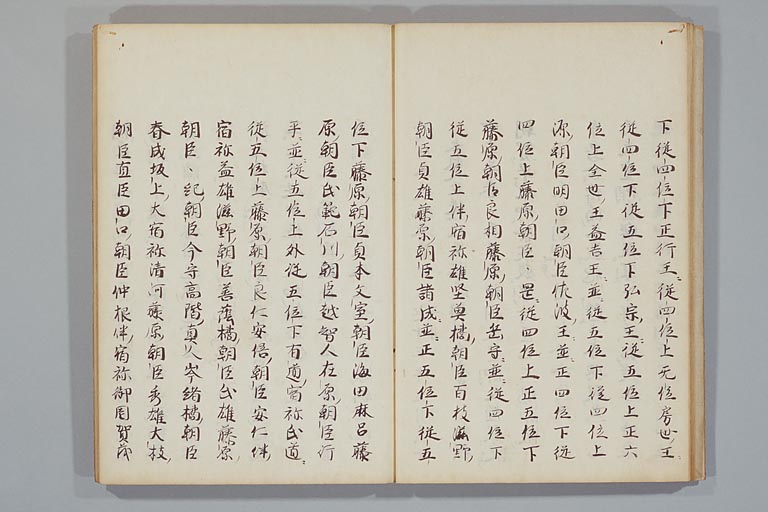 下従四位下正行王従四位上无位房世王
従四位下従五位下弘宗王従五位上正六
位上全世王益吉王並従五位下従四位上
源朝臣明田口朝臣佐波王並正四位下従
四位上藤原朝臣、是従四位上正五位下
藤原朝臣良相藤原朝臣岳守並従四位下
従五位上伴宿祢雄堅真橘朝臣百枝滋野
朝臣貞雄藤原朝臣諸成並正五位下従五
位下藤原朝臣貞本文室朝臣海田麻呂藤
原朝臣氏範石川朝臣越智人在原朝臣行
平並従五位上外従五位下有道宿祢氏道
従五位上藤原朝臣良仁安倍朝臣安仁伴
宿祢益雄滋野朝臣善蔭橘朝臣氏雄藤原
朝臣、紀朝臣今守高階真人岑緒橘朝臣
春成坂上大宿祢清河藤原朝臣秀雄大枝
朝臣直臣田口朝臣仲根伴宿祢御園賀茂